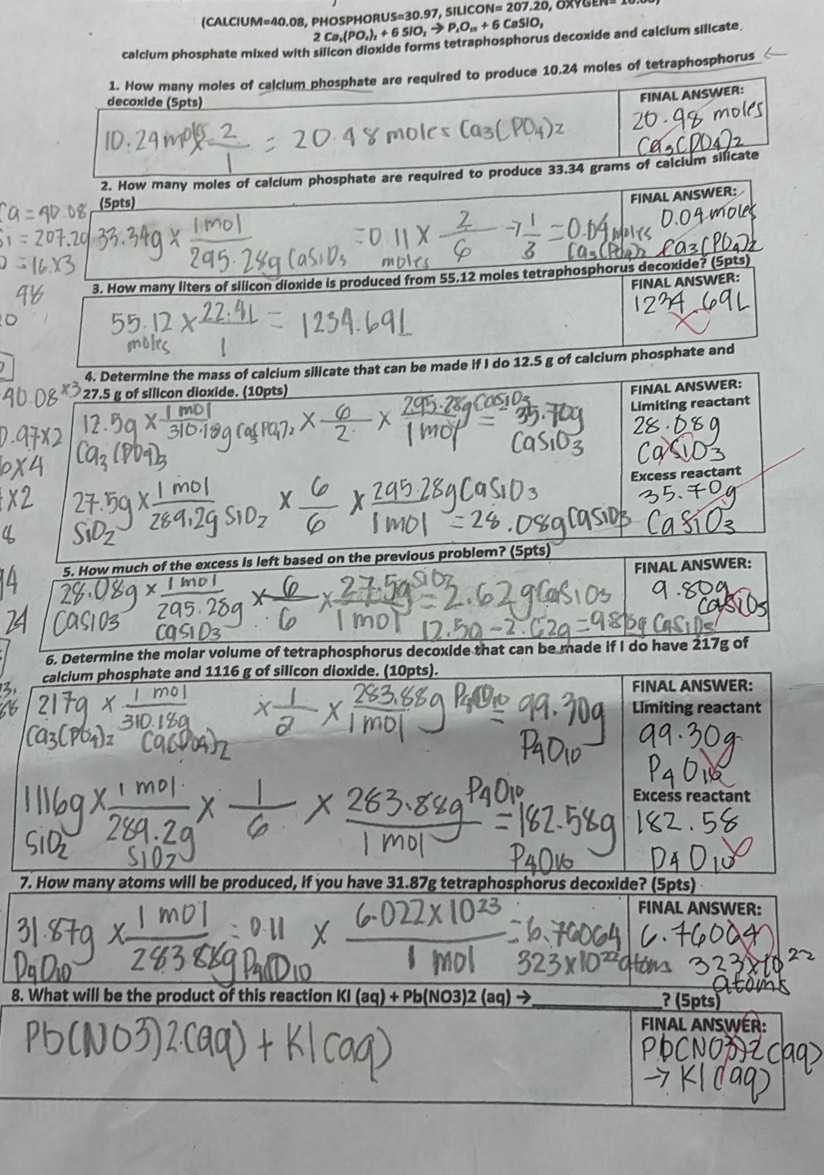 (CALCIUM=40.08, PHOSPHORUS=30.97, SILICON= 207.20, OXYGEN=
2 Ca₃(PO₄)₂ + 6 SiO₂ → P₄O₁₀ + 6 CaSiO₃
calcium phosphate mixed with silicon dioxide forms tetraphosphorus decoxide and calcium silicate
1. How many moles of calcium phosphate are required to produce 10.24 moles of tetraphosphorus
decoxide (5pts)
FINAL ANSWER:
10.24 moles x 2/1 = 20.48 moles Ca3(PO4)2
20.48 moles
Ca3(PO4)2
2. How many moles of calcium phosphate are required to produce 33.34 grams of calcium silicate
(5pts)
FINAL ANSWER:
Ca = 40.08
Si = 207.20
O = 16x3
48
33.34g x 1 mol / 295.28g CaSiO3 = 0.11 moles x 2/6 → 1/3 = 0.04 moles Ca3(PO4)2
0.04 moles
Ca3(PO4)2
3. How many liters of silicon dioxide is produced from 55.12 moles tetraphosphorus decoxide? (5pts)
FINAL ANSWER:
55.12 moles x 22.4L / 1 = 1234.69L
1234.69L
4. Determine the mass of calcium silicate that can be made if I do 12.5 g of calcium phosphate and
27.5 g of silicon dioxide. (10pts)
FINAL ANSWER:
Limiting reactant
40.08x3
12.5g Ca3(PO4)2 x 1 mol / 310.18g Ca3(PO4)2 x 6/2 x 295.28g CaSiO3 / 1 mol = 35.70g CaSiO3
28.08g
CaSiO3
Excess reactant
27.5g SiO2 x 1 mol / 289.2g SiO2 x 6/6 x 295.28g CaSiO3 / 1 mol = 28.08g CaSiO3
35.70g
CaSiO3
5. How much of the excess is left based on the previous problem? (5pts)
FINAL ANSWER:
28.08g CaSiO3 x 1 mol / 295.28g CaSiO3 x 6/6 x 27.5g / 1 mol = 2.62g CaSiO3
12.5g - 2.62g =
9.80g
CaSiO3
6. Determine the molar volume of tetraphosphorus decoxide that can be made if I do have 217g of
calcium phosphate and 1116 g of silicon dioxide. (10pts).
FINAL ANSWER:
Limiting reactant
217g Ca3(PO4)2 x 1 mol / 310.18g Ca3(PO4)2 x 1/2 x 283.88g P4O10 / 1 mol = 99.30g P4O10
99.30g
P4O10
Excess reactant
1116g SiO2 x 1 mol / 289.2g SiO2 x 1/6 x 283.88g P4O10 / 1 mol = 182.58g P4O10
182.58
P4O10
7. How many atoms will be produced, if you have 31.87g tetraphosphorus decoxide? (5pts)
FINAL ANSWER:
31.87g P4O10 x 1 mol / 283.88g P4O10 = 0.11 x 6.022x10^23 / 1 mol = 6.76064323x10^22 atoms
6.76064
323x10^22
atoms
8. What will be the product of this reaction KI (aq) + Pb(NO3)2 (aq) → ? (5pts)
FINAL ANSWER:
Pb(NO3)2(aq) + KI(aq)
Pb(NO3)2(aq)
→ KI(aq)